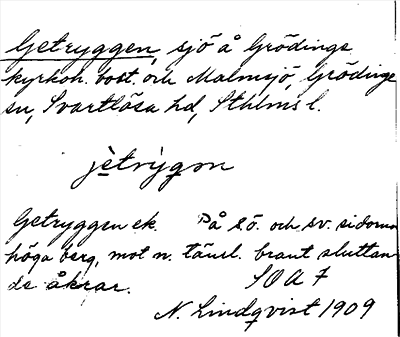 Getryggen, sjö å Grödinge
kyrkoh. bost. och Malmsjö, Grödinge
sn, Svartlösa hd, Sthlms l.
jètrỳgon
Getryggen ek. På sö. och sv. sidorna
höga berg, mot n. täml. brant sluttan
de åkrar. SOA 7
N. Lindqvist 1909